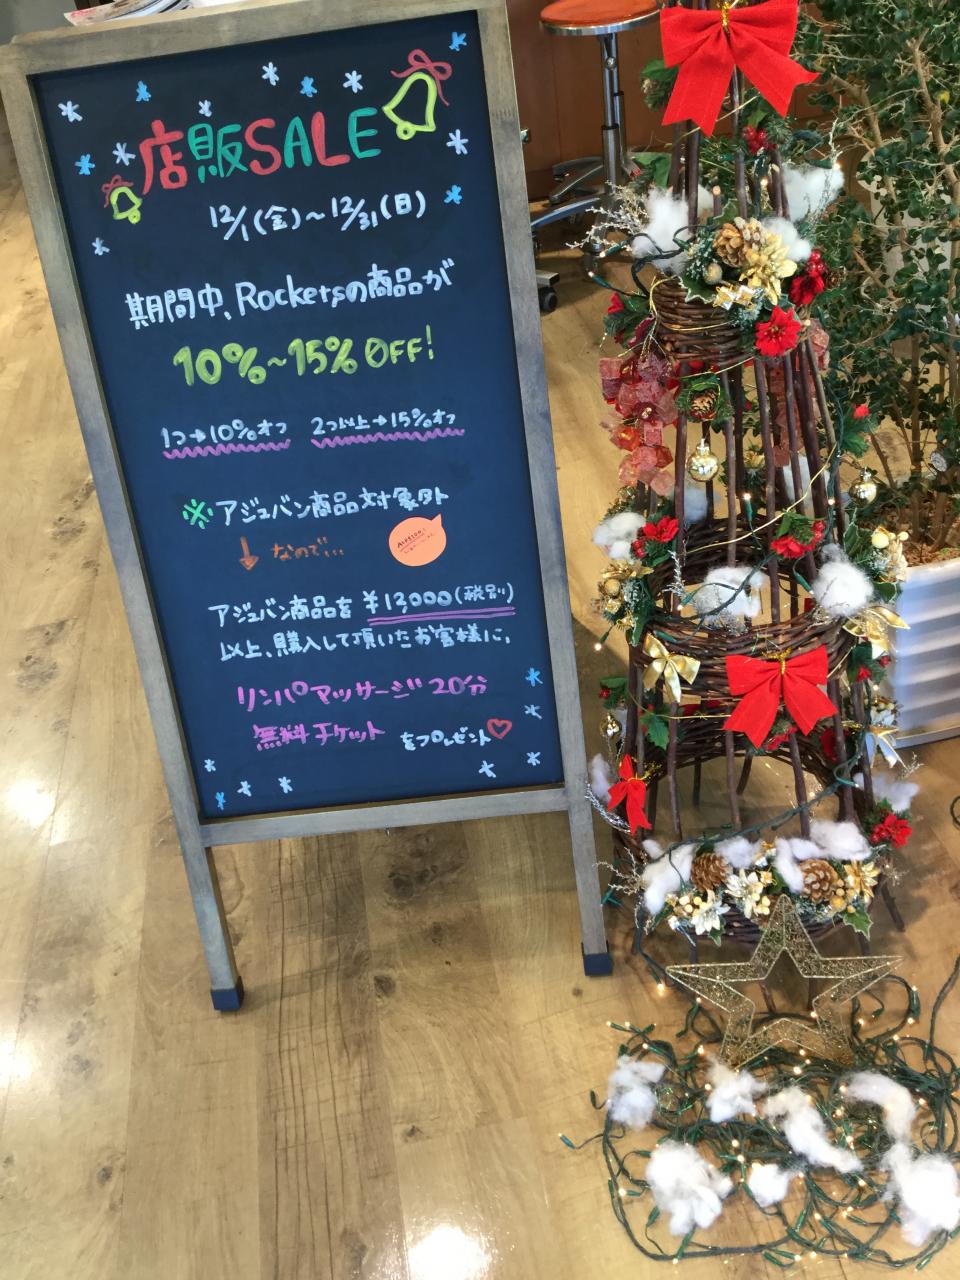 店販SALE
12/1(金)～12/31(日)
期間中、Rocketsの商品が
10%～15%OFF!
1つ→10%オフ 2つ以上→15%オフ
※アジュバン商品対象外
↓なので…
アジュバン商品を¥12000(税別)
以上、購入して頂いたお客様に、
リンパマッサージ20分
無料チケットをプレゼント♡